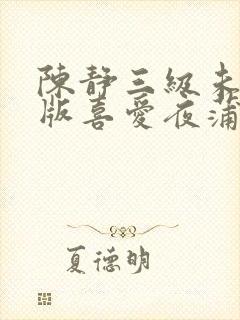 陳靜三級未
版喜愛夜蒲
夏德明